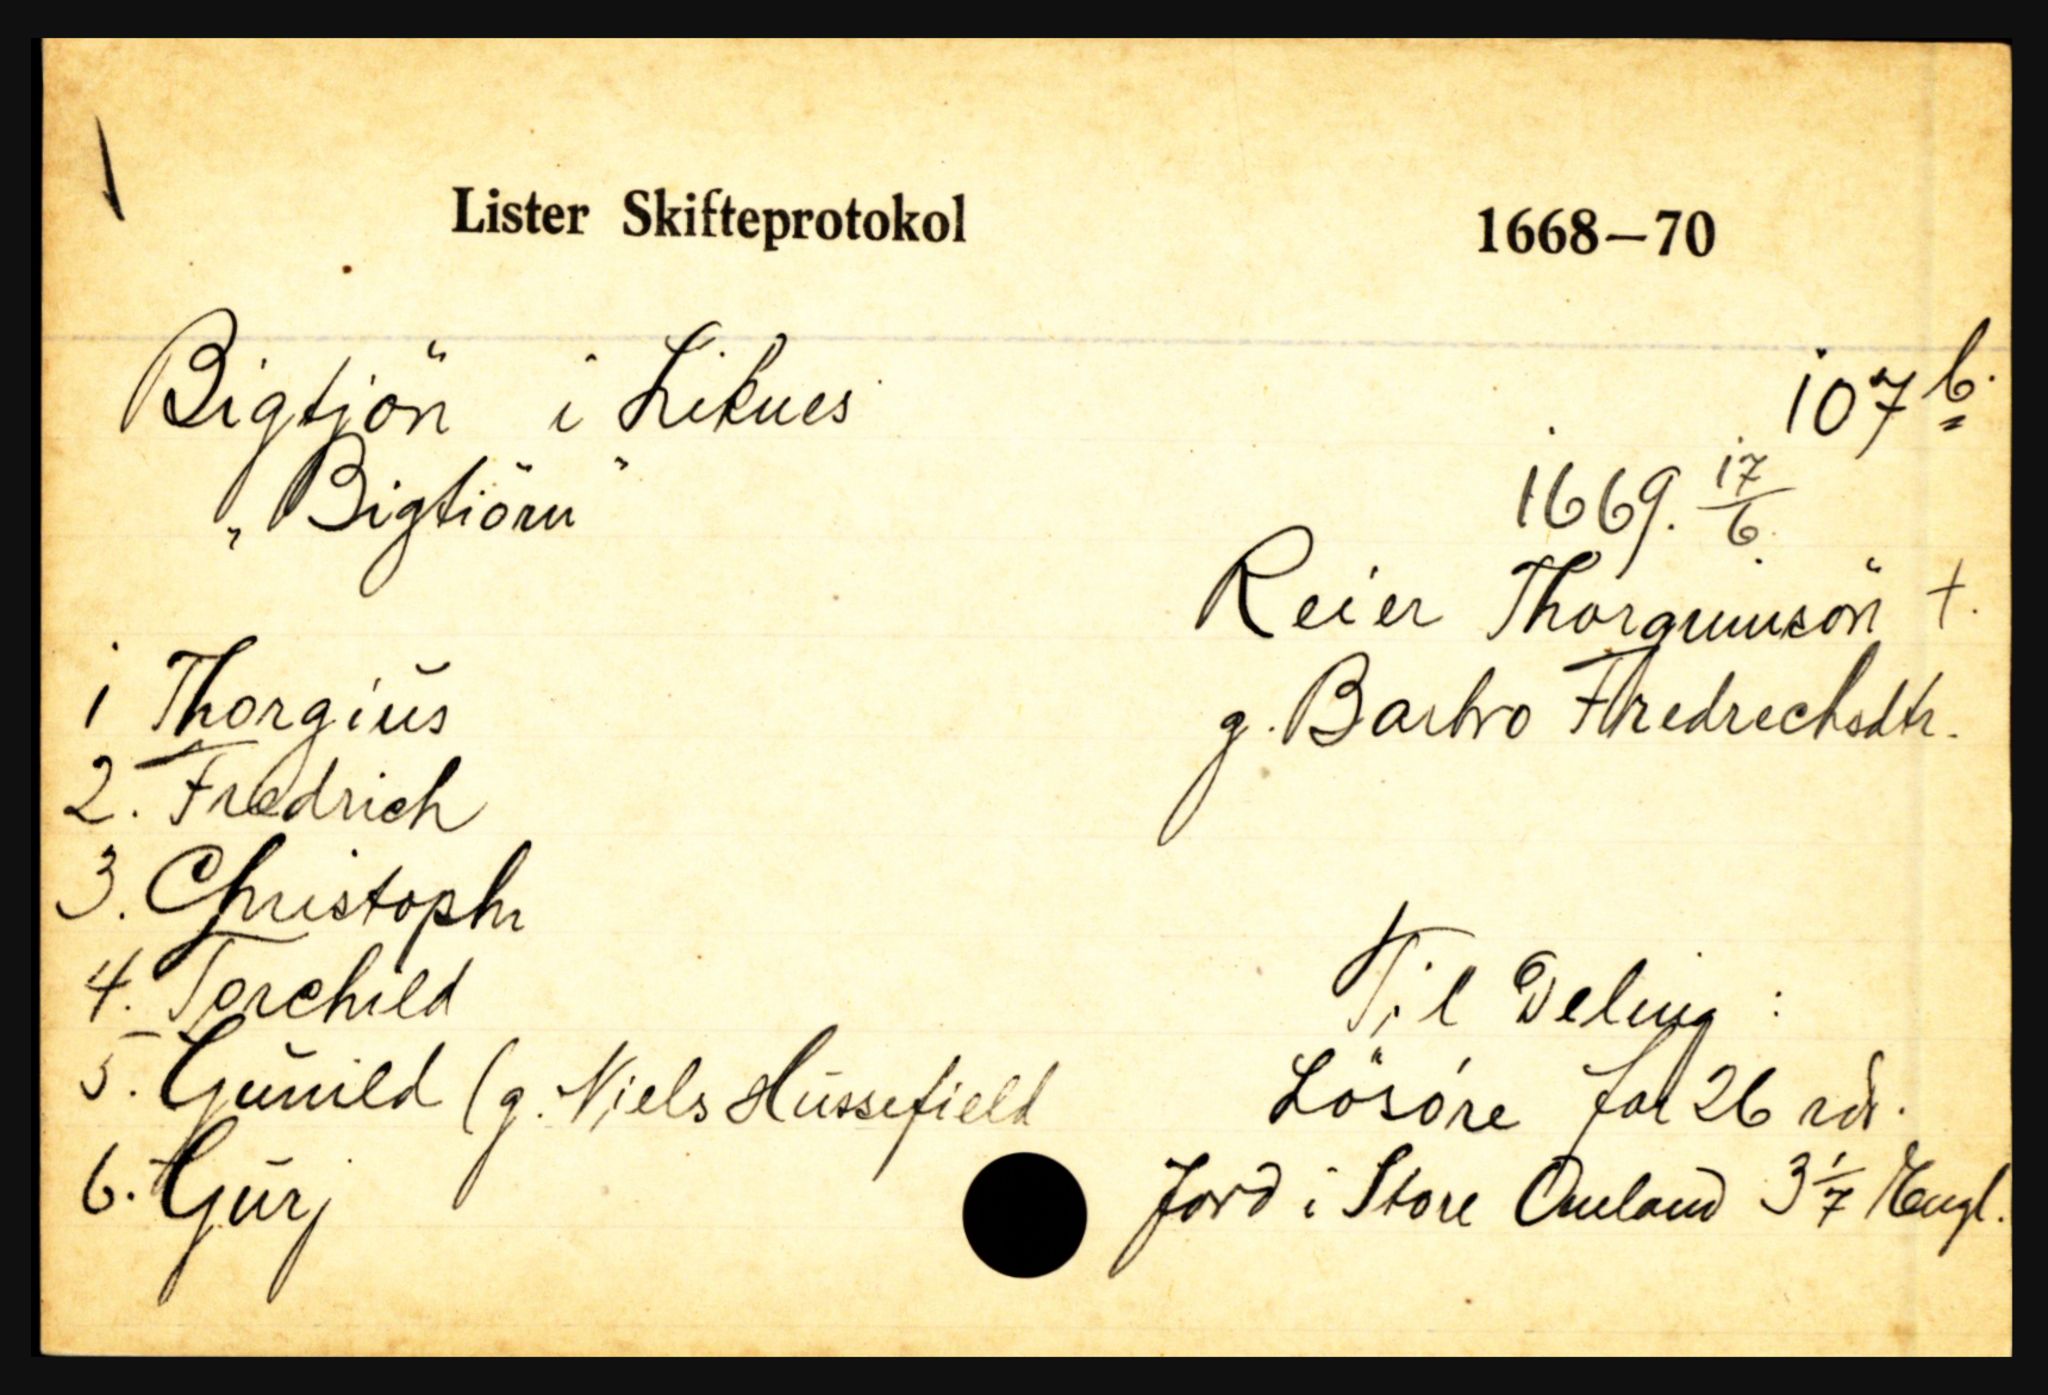 Lister Skifteprotokol 1668–70
Bigtjön i Liknes 107 b.
„Bigtiörn"
1669. 17/6.
Reier Thorgiusön †.
g. Barbro Fredrechsdtr.
1 Thorgiŭs
2. Fredrich
3. Christophr
4. Torchild
5. Gŭnild (g. Niels Hŭssefield
6. Gŭrj
Til Deling :
Lösöre for 26 rdr.
Jord i Store Omland 3 1/7 Engl.